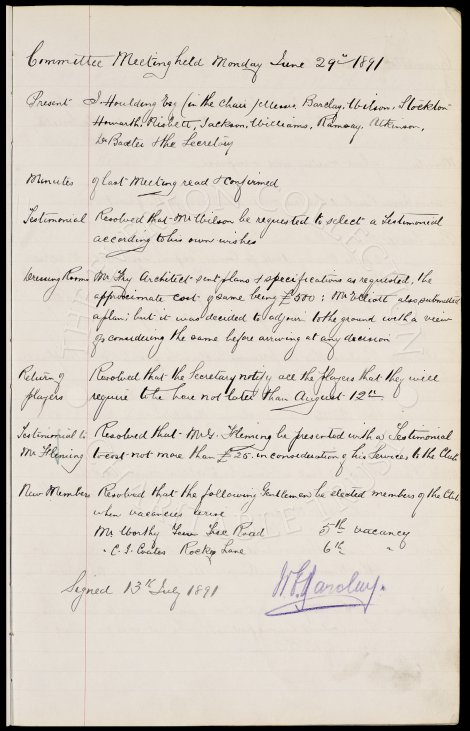 Committee Meeting held Monday June 29th 1891
Present J. Houlding Esq (in the Chair) Messrs Barclay, Wilson, Stockton
Howarth, Nisbett, Jackson, Williams, Ramsay, Atkinson,
Dr Baxter & the Secretary
Minutes of last Meeting read & confirmed
Testimonial Resolved that Mr Wilson be requested to select a Testimonial
according to his own wishes
Dressing Rooms Mr Fry Architect sent plans & specifications as requested, the
approximate cost of same being £500; Mr also submitted
a plan; but it was decided to adjourn to the ground with a view
of considering the same before arriving at any decision
Return of Resolved that the Secretary notify all the players that they will
players require to be here not later than August 12th
Testimonial to Resolved that Mr G. Fleming be presented with a Testimonial
Mr Fleming to cost not more than £25. in consideration of his Services to the Club
New Members Resolved that the following Gentlemen be elected members of the Club
when vacancies arise
Mr Worthy Town Road 5th vacancy
" C. J. Coates Rocky Lane 6th "
Signed 13th July 1891 W E Barclay.